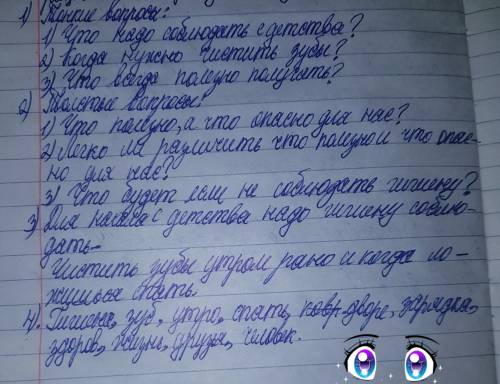 1) Тонкие вопросы:
1) Что надо соблюдать с детства?
2) Когда нужно чистить зубы?
3) Что всегда полезно получать?
2) Толстые вопросы:
1) Что полезно, а что опасно для нас?
2) Легко ли различить что полезно и что опас-
но для нас?
3) Что будет если не соблюдать гигиену?
3) Для начала с детства надо гигиену соблю-
дать-
Чистить зубы утром рано и когда ло-
жишься спать.
4). Гигиена, зуб, утро, спать, двор, зарядка,
здоров, жизнь, друзья, человек.